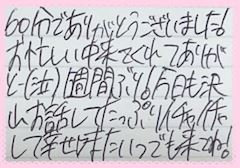 60分でありがとうございました!
お忙しい中来てくれてありが
と(泣)1週間ぶり!今日も沢
山お話してたっぷりイチャイチャ
して幸せ!またいつでも来てね!